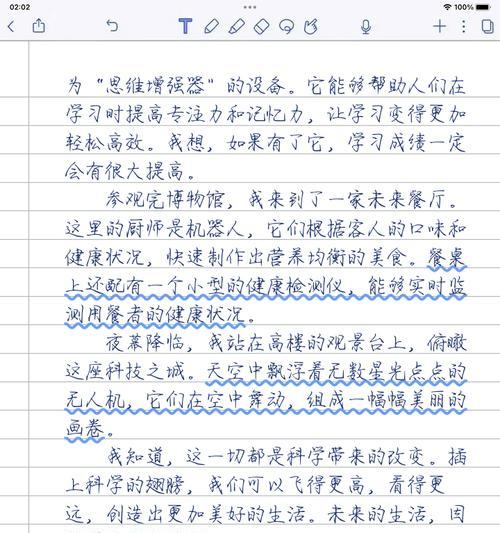 02:02
100%
T
为“思维增强器”的设备。它能够帮助人们在
学习时提高专注力和记忆力，让学习变得更加
轻松高效。我想，如果有了它，学习成绩一定
会有很大提高。
参观完博物馆，我来到了一家未来餐厅。
这里的厨师是机器人，它们根据客人的口味和
健康状况，快速制作出营养均衡的美食。餐桌
上还配有一个小型的健康检测仪，能够实时监
测用餐者的健康状况。
夜幕降临，我站在高楼的观景台上，俯瞰
这座科技之城。天空中飘浮着无数星光点点的
无人机，它们在空中舞动，组成一幅幅美丽的
画卷。
我知道，这一切都是科学带来的改变。插
上科学的翅膀，我们可以飞得更高，看得更
远，创造出更加美好的生活。未来的生活，因